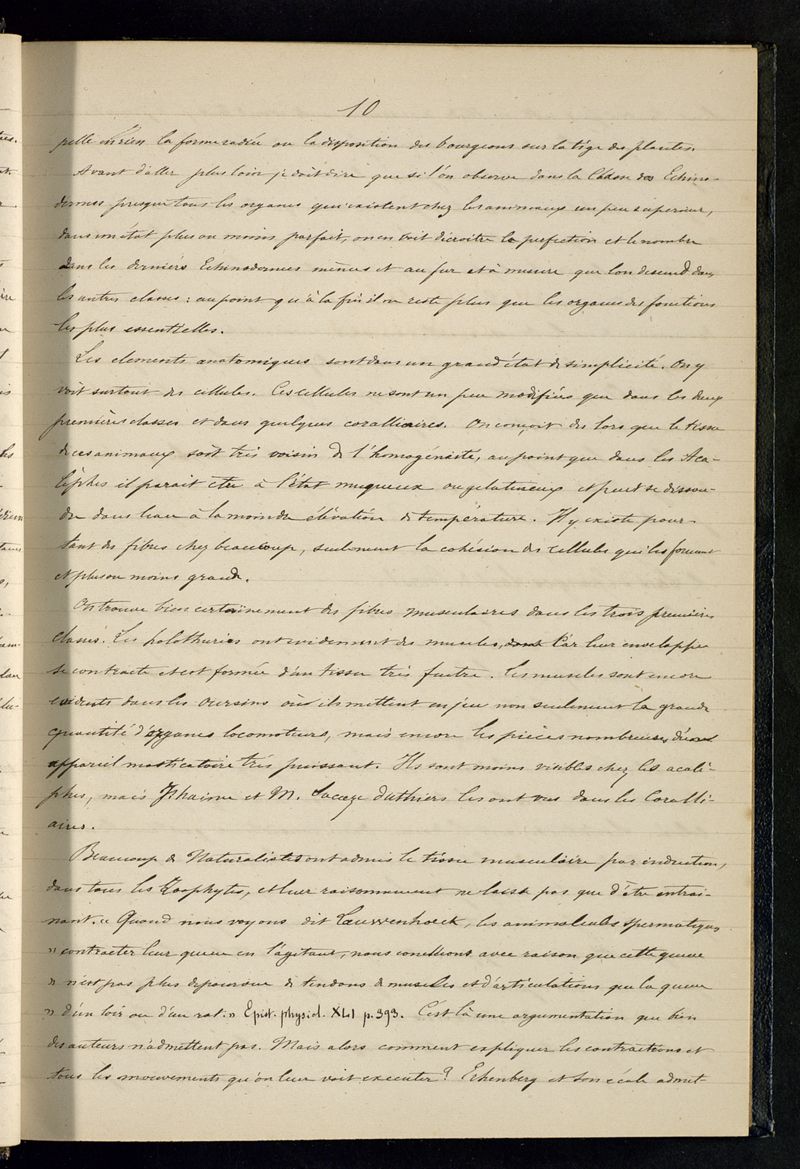 10
pelle en rien la forme radiée ou la disposition des bourgeons sur la tige des plantes.
Avant d'aller plus loin je doit dire que si l'on observe dans la Classe des Echino-
dermes presque tous les organes qui existent chez les animaux un peu superieur,
dans un état plus ou moins parfait, on en voit décroitre la perfection et le nombre
dans les derniers Echinodermes mêmes et au fur et à mesure que l'on descend dans
les autres classes: au point qu'à la fin il ne reste plus que les organes des fonctions
les plus essentielles.
Les elements anatomiques sont dans un grand état de simplicité. On y
voit surtout des cellules. Ces cellules ne sont un peu modifiées que dans les deux
premières classes et dans quelques coralliaires. On conçoit dès lors que le tissu
de ces animaux soit très voisin de l'homogénéité, au point que dans les Aca-
lèphes il parait être à l'état muqueux ou gelatineux et peut se dissou-
dre dans l'eau à la moindre élévation de température. Il y existe pour-
tant des fibres chez beaucoup, seulement la cohésion des cellules qui les forment
et plus ou moins grande.
On trouve bien certainement des fibres musculaires dans les trois premières
classes. Les holothuries ont evidemment des muscles, car leur enveloppe
se contracte et est formée d'un tissu très feutre. Les muscles sont encore
evidents dans les oursins où ils mettent en jeu non seulement la grande
quantité d'organes locomoteurs, mais encore les pièces nombreuses d'un
appareil masticatoire très puissant. Ils sont moins visibles chez les acalè-
phes, mais J. Haime et M. Lacaze duthiers les ont vus dans les Coralli-
aires.
Beaucoup de Naturalistes ont admis le tissu musculaire par induction,
dans tous les Zoophytes, et leur raisonnement ne laisse pas que d'être entrai-
nant. « Quand nous voyons dit Leuwenhoeck, les animalcules spermatiques
» contracter leur queue en l'agitant, nous concluons avec raison que cette queue
» n'est pas plus depourvue de tendons de muscles et d'articulations que la queue
» d'un loir ou d'un rat.» Epist. physiol. XLI p.393. C'est là une argumentation que bien
des auteurs n'admettent pas. Mais alors comment expliquer les contractions et
tous les mouvements qu'on leur voit executer? Erhenberg et son école admet-